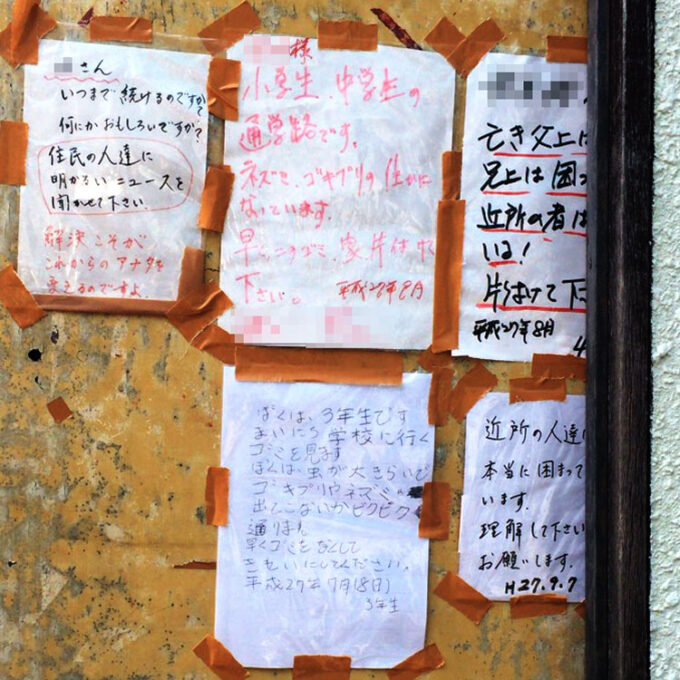 さん
いつまで続けるのですか?
何にかおもしろいですか?
住民の人達に
明かるいニュースを
聞かせて下さい。
解決こそが
これからのアナタを
変えるのですよ。
様
小学生、中学生の
通学路です。
ネズミ、ゴキブリの住かに
なっています。
早くこのゴミ、家、片付け
下さい。
平成27年8月
亡き父上は
兄上は困っ
近所の者は
いる!
片付けて下
平成27年8月
ぼくは、3年生です
まいにち学校に行く
ゴミを見ます
ぼくは、虫が大きらいで
ゴキブリやネズミが
出てこないかビクビク
通ります
早くゴミをなくして
きれいにしてください。
平成27年7月18日
3年生
近所の人達に
本当に困って
います。
理解して下さい
お願いします。
H27.9.7